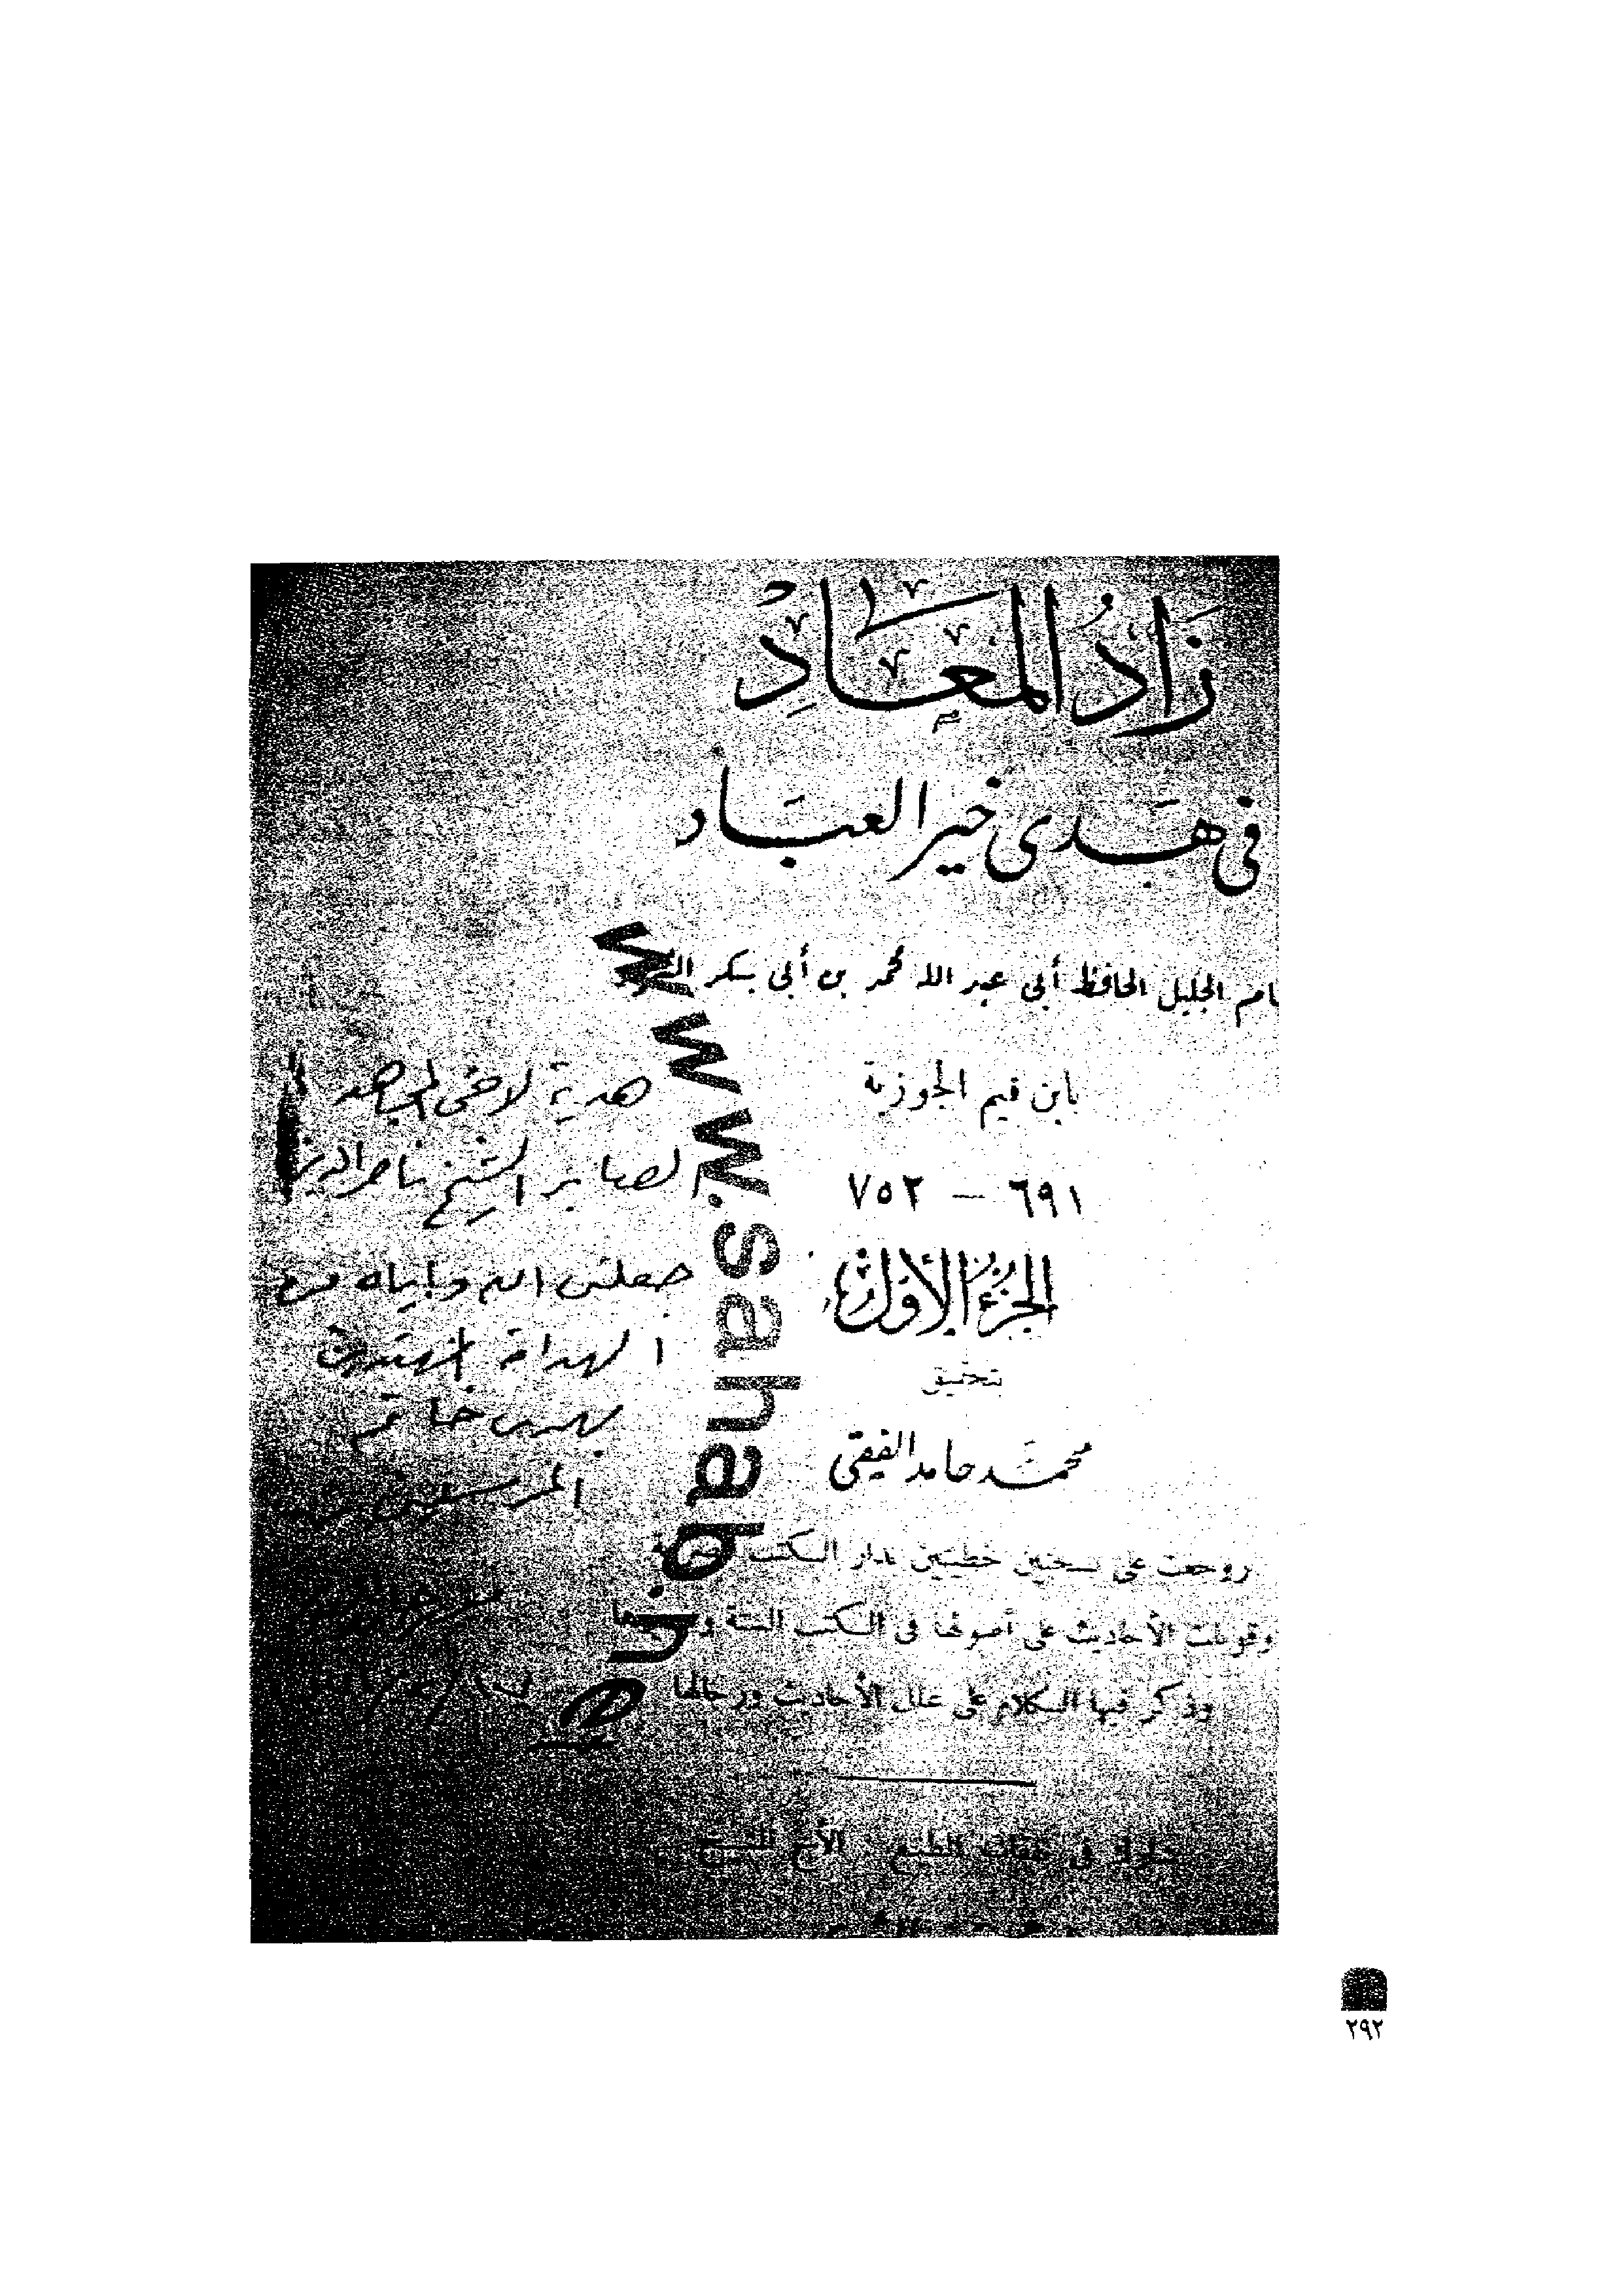 زَادُ المَعَادِ
في هَدي خير العباد
ام الجليل الحافظ أبي عبد الله محمد بن أبي بكر
بابن قيم الجوزية
٦٩١ — ٧٥٢
الجزء الأول
بتحقيق
محمد حامد الفقي
روجعت على نسختين خطيتين بدار الكتب
وقوبلت الأحاديث على أصولها في الكتب الستة
وذكر فيها الكلام على علل الأحاديث ورجالها
هدية لأخي المجاهد
الصابر الشيخ ناصر الدين
جعلني الله وإياه من
الهداة المهتدين
بهدي خاتم
المرسلين
www.sahab.ne
٢٩٢